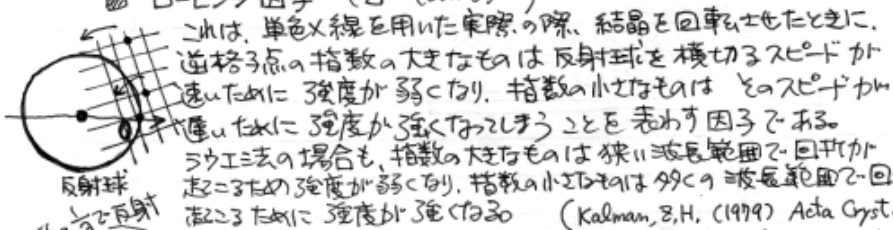 これは、単色X線を用いた実際の際、結晶を回転させたときに、
逆格子点の指数の大きなものは反射球を横切るスピードが
速いために強度が弱くなり、指数の小さなものはそのスピードが
遅いために強度が強くなってしまうことを表わす因子である。
ラウエ法の場合も、指数の大きなものは狭い波長範囲で回折が
起こるため強度が弱くなり、指数の小さなものは多くの波長範囲で回
起こるために強度が強くなる。 (Kalman, Z.H. (1979) Acta Cryst.
反射球
で反射